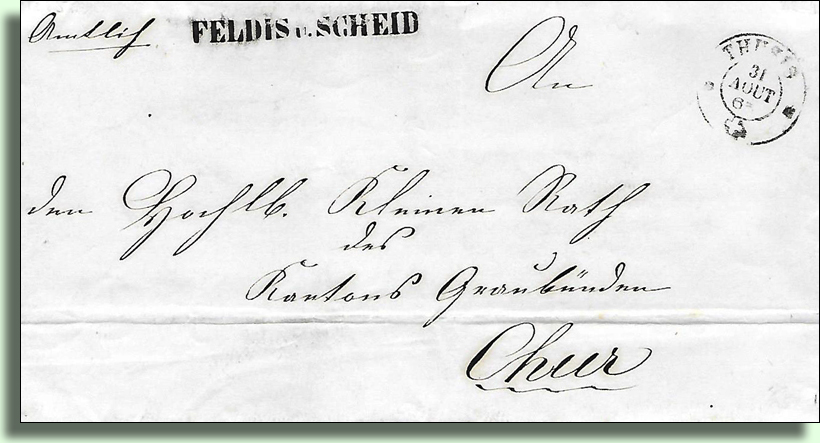 Amtlich
FELDIS u. SCHEID
THUSIS
31
AOUT
An
den Hochlb. Kleinen Rath
des
Kantons Graubünden
Chur